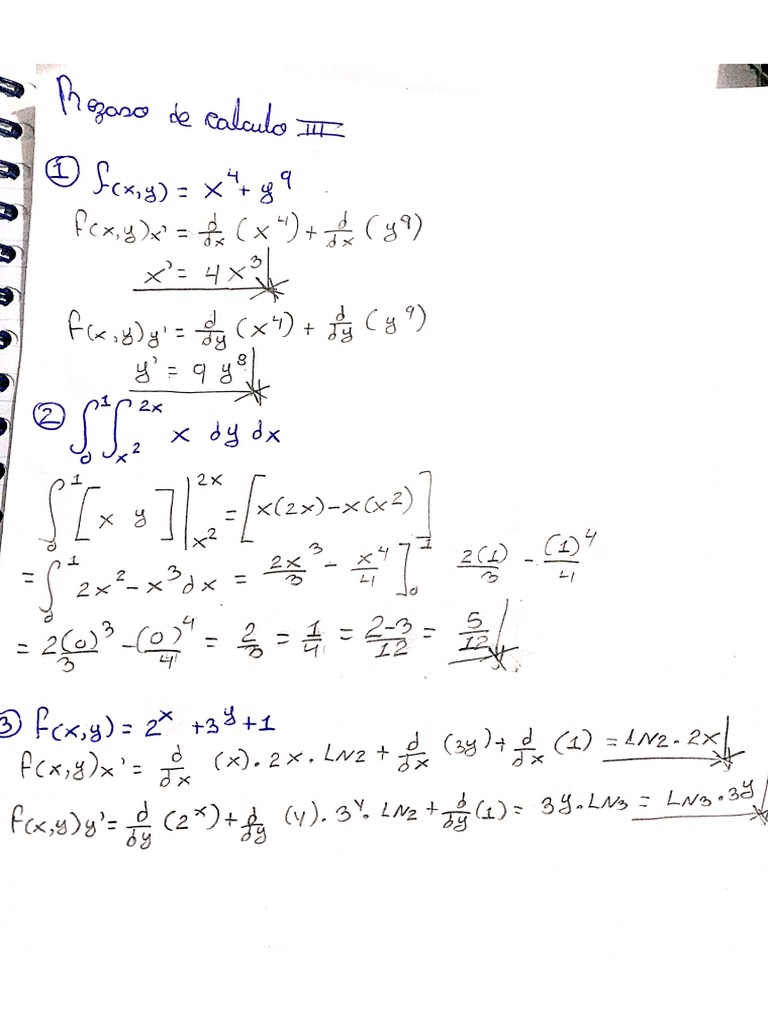 Repaso de calculo III
① f(x,y) = x⁴ + y⁹
f(x,y)x' = d/dx (x⁴) + d/dx (y⁹)
x' = 4x³
f(x,y)y' = d/dy (x⁴) + d/dy (y⁹)
y' = 9y⁸
② ∫₀¹ ∫_{x²}^{2x} x dy dx
∫₀¹ [x y] |_{x²}^{2x} = [x(2x) - x(x²)]
= ∫₀¹ 2x² - x³ dx = 2x³/3 - x⁴/4 ]₀¹ 2(1)/3 - (1)⁴/4
= 2(0)³/3 - (0)⁴/4 = 2/3 = 1/4 = 2-3/12 = 5/12
③ f(x,y) = 2ˣ + 3ʸ + 1
f(x,y)x' = d/dx (x) · 2x · LN2 + d/dx (3y) + d/dx (1) = LN2 · 2x
f(x,y)y' = d/dy (2ˣ) + d/dy (y) · 3ʸ · LN2 + d/dy (1) = 3y · LN3 = LN3 · 3y